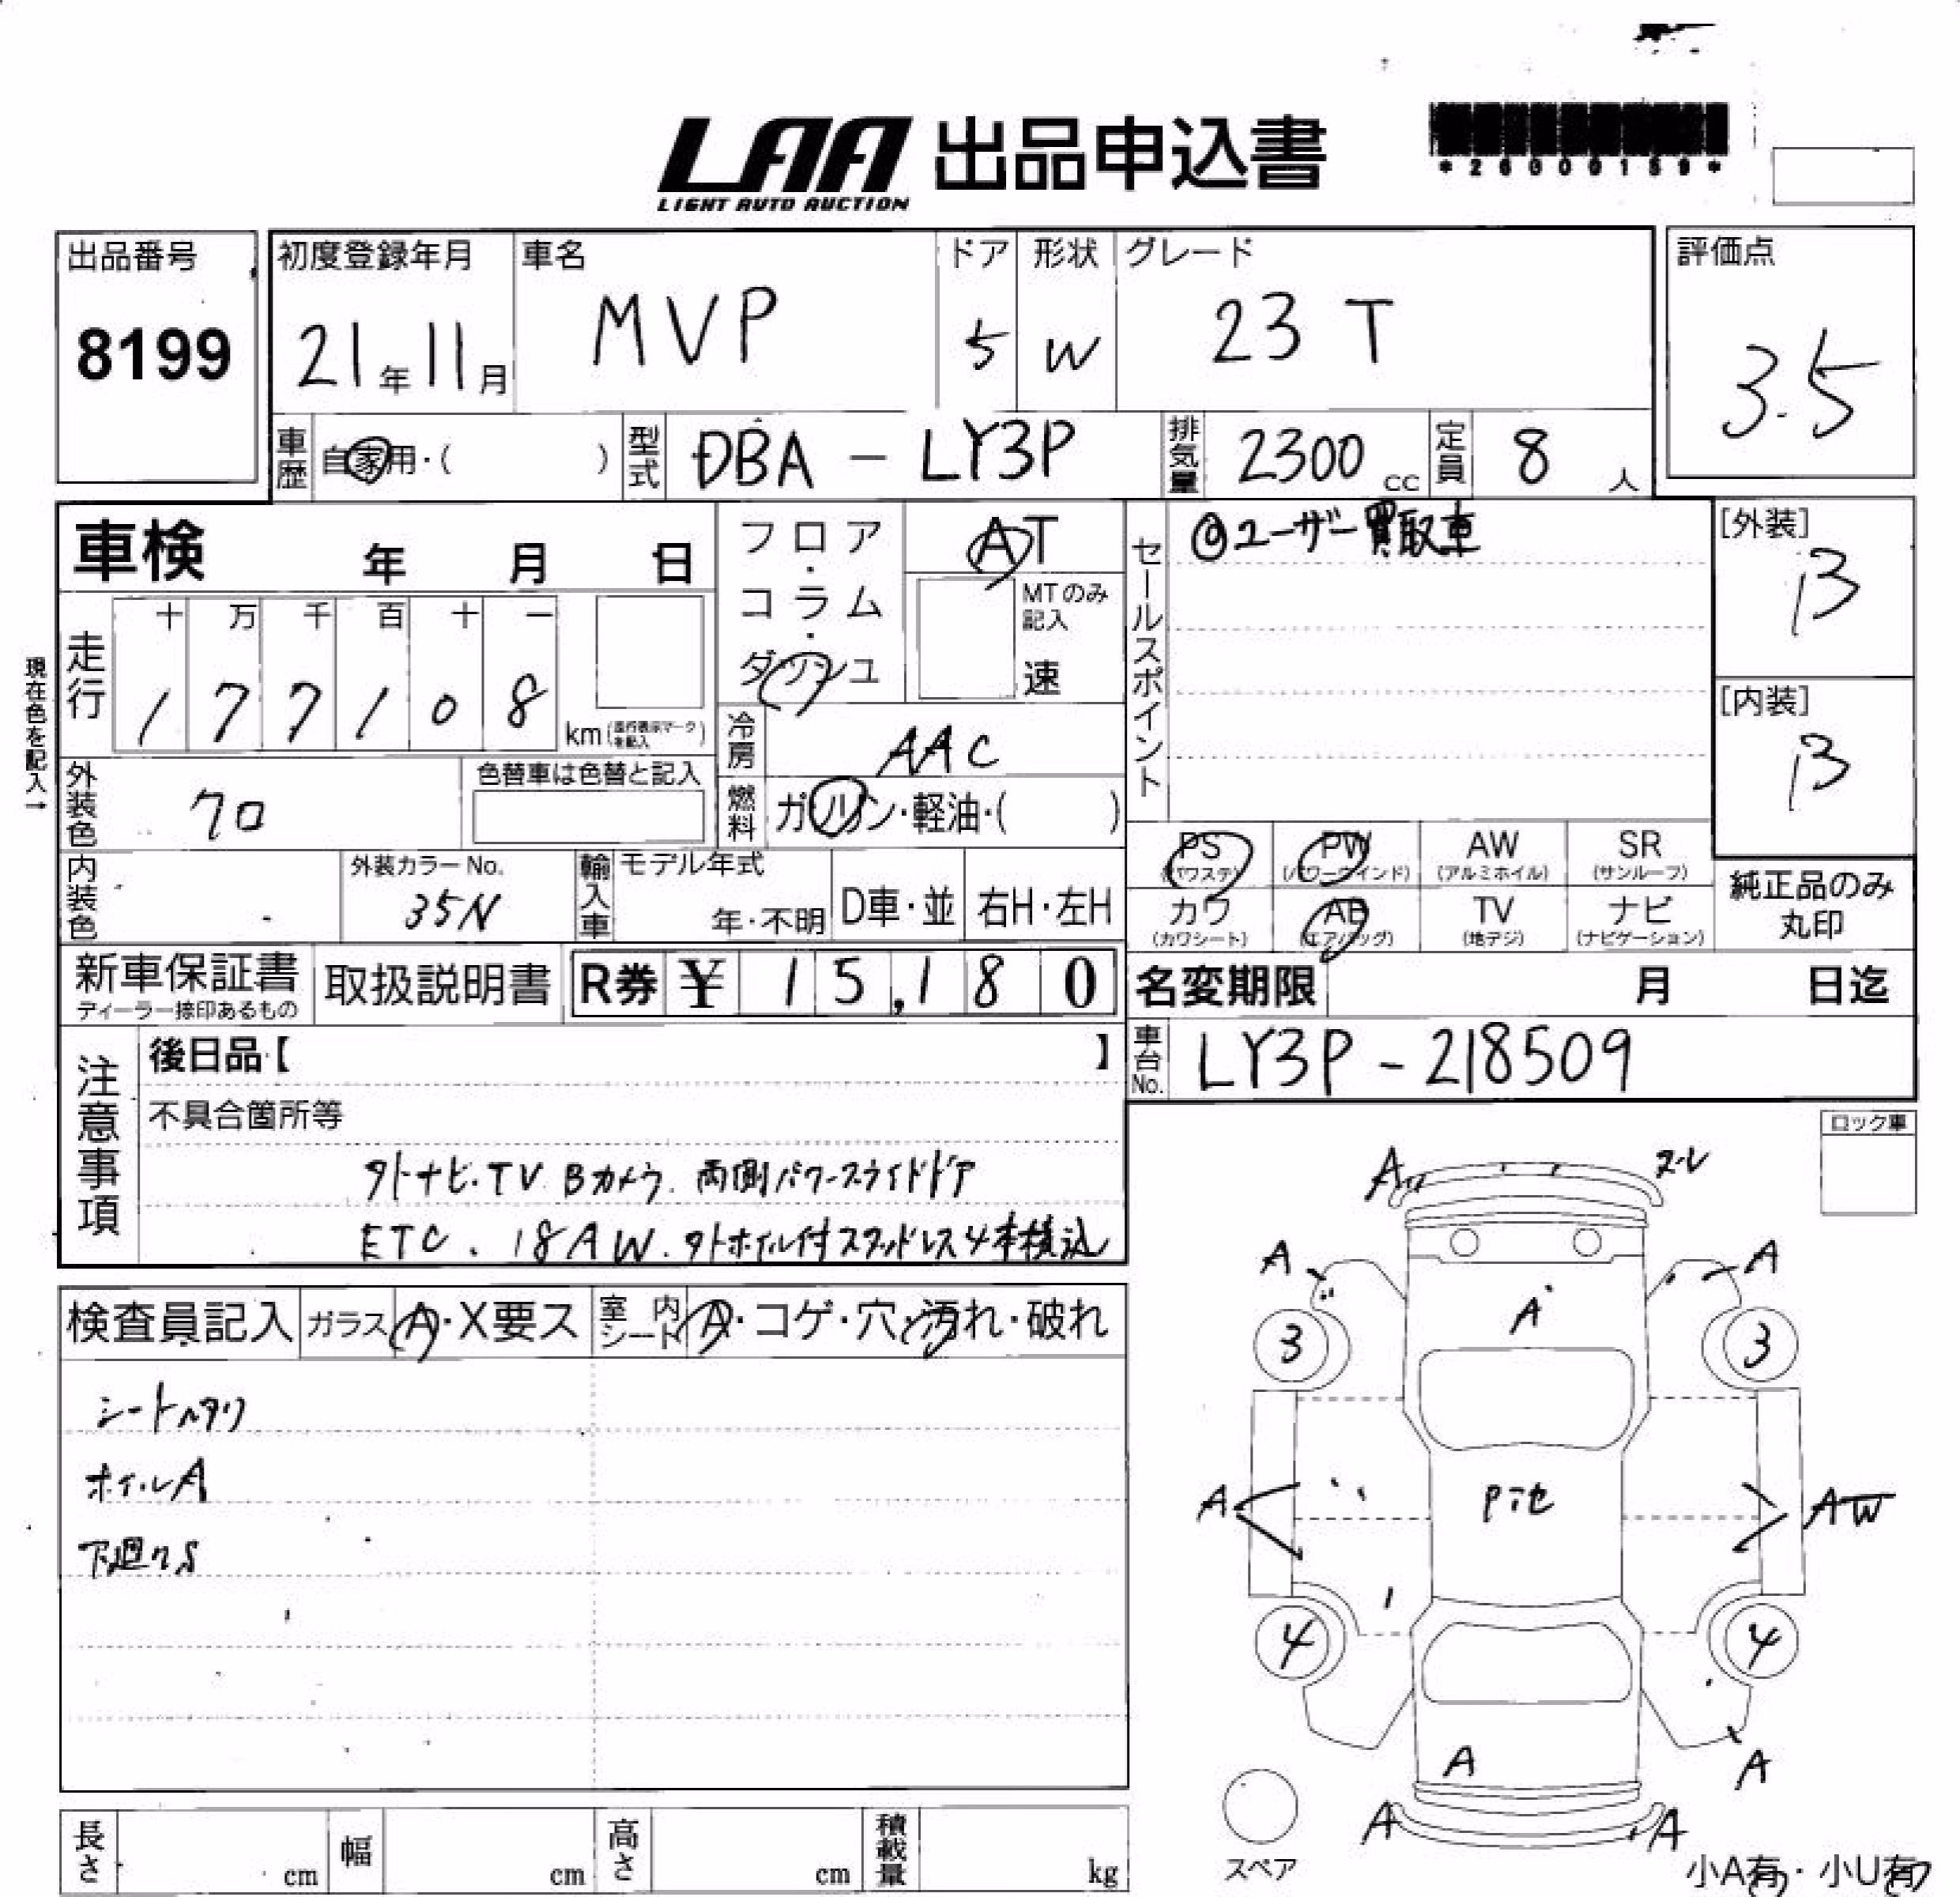 *26000159*
LAA 出品申込書
LIGHT AUTO AUCTION
出品番号
8199
初度登録年月
21年11月
車名
MVP
ドア
5
形状
W
グレード
23T
評価点
3.5
車歴
自家用・( )
型式
DBA-LY3P
排気量
2300cc
定員
8人
車検 年 月 日
フロア・コラム・ダッシュ
AT
MTのみ記入
速
セールスポイント
◎ユーザー買取車
[外装]
B
[内装]
B
現在色を記入→
走行
十 万 千 百 十 一
1 7 7 1 0 8
km
冷房
AAC
外装色
クロ
色替車は色替と記入
燃料
ガソリン・軽油・( )
内装色
外装カラーNo.
35N
輸入車
モデル年式
年・不明
D車・並
右H・左H
PS
(パワステ)
PW
(パワーウインド)
AW
(アルミホイル)
SR
(サンルーフ)
カワ
(カワシート)
AB
(エアバッグ)
TV
(地デジ)
ナビ
(ナビゲーション)
純正品のみ
丸印
新車保証書
ディーラー捺印あるもの
取扱説明書
R券 ¥ 15,180
名変期限 月 日迄
車台No.
LY3P-218509
注意事項
後日品【 】
不具合箇所等
外ナビ.TV Bカメラ. 両側パワースライドドア
ETC. 18AW. 外ホイル付スタッドレス4本積込
ロック車
検査員記入
ガラス
A・X要ス
室内シート
A・コゲ・穴・汚れ・破れ
シートヘタリ
ホイルA
下廻りS
A
A
A
A
3
3
A
AW
4
4
A
A
A
A
スペア
長さ cm
幅 cm
高さ cm
積載量 kg
小A有・小U有